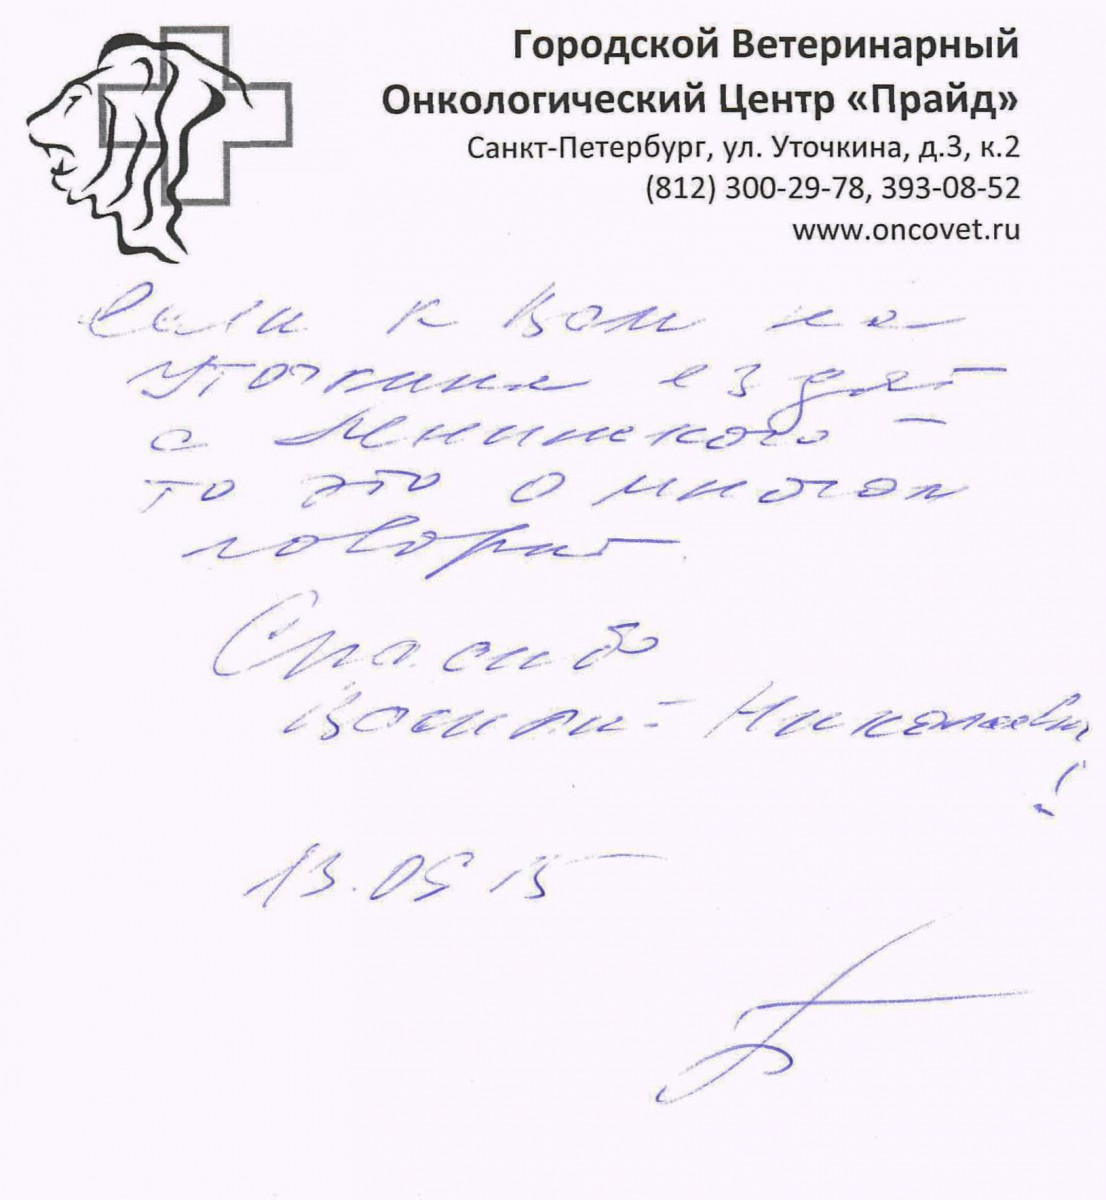 Городской Ветеринарный
Онкологический Центр «Прайд»
Санкт-Петербург, ул. Уточкина, д.3, к.2
(812) 300-29-78, 393-08-52
www.oncovet.ru
Если к Вам на
Уточкина ездят
с Ленинского –
то это о многом
говорит
Спасибо
Николаевич
!
13.05 15